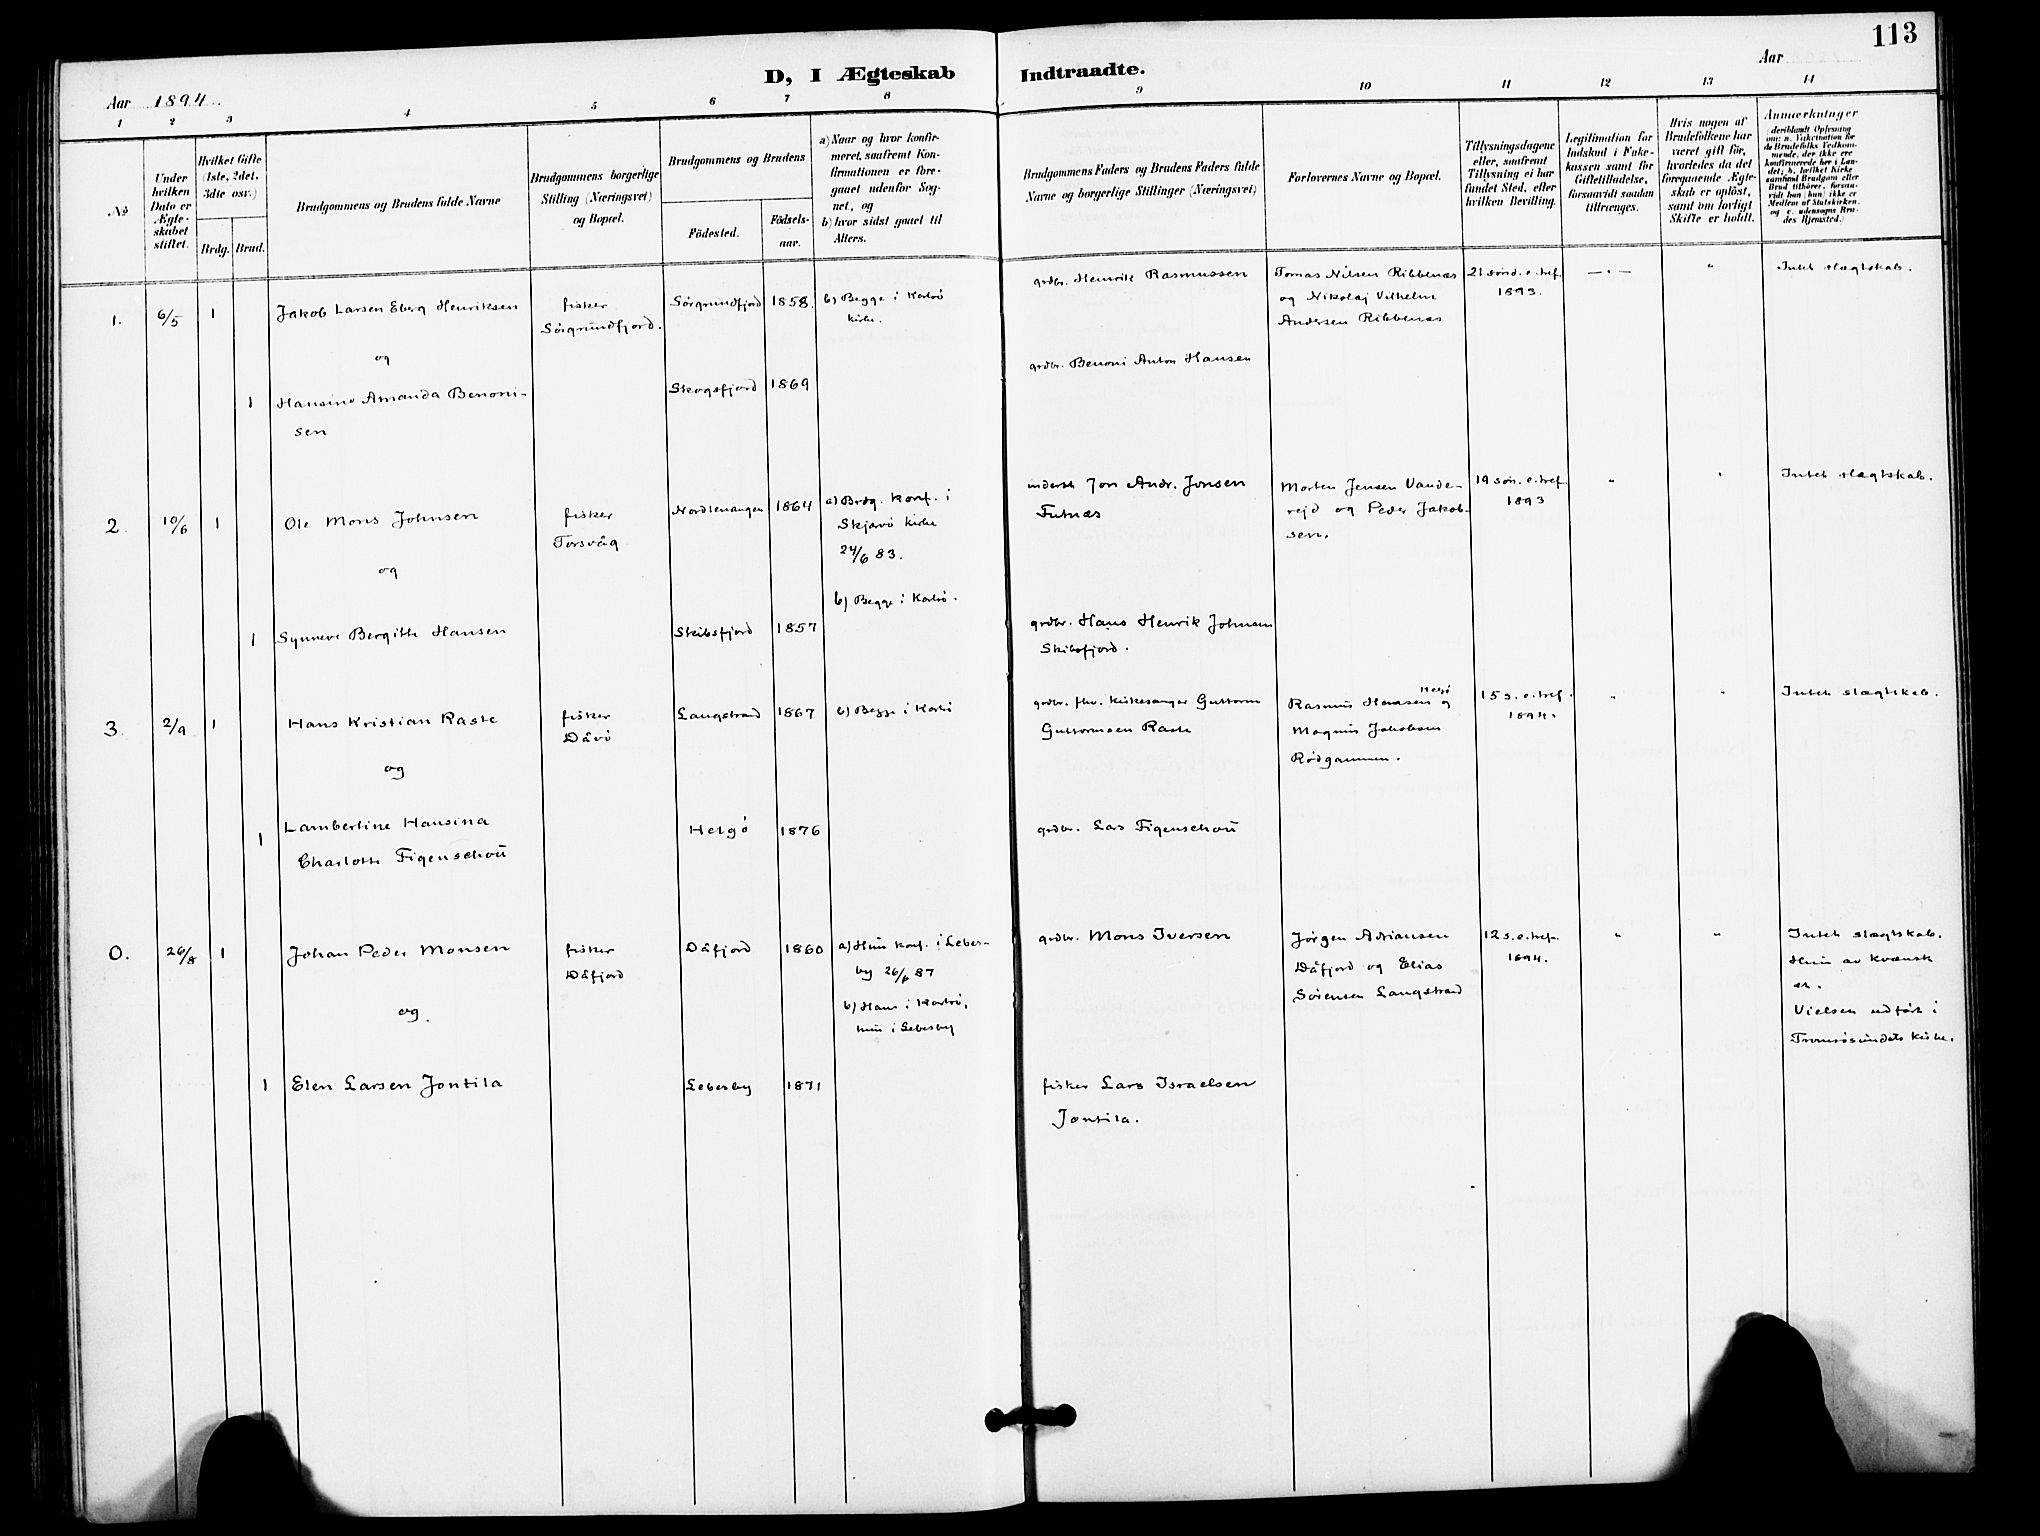 113
D, I Ægteskab Indtraadte.
Aar 1894
Aar
1 2 3 4 5 6 7 8 9 10 11 12 13 14
No
Under hvilken Dato er Ægteskabet stiftet.
Hvilket Gifte (1ste, 2det, 3die osv.)
Brdg. Brud.
Brudgommens og Brudens fulde Navne
Brudgommens borgerlige Stilling (Næringsvei) og Bopæl.
Brudgommens og Brudens
Födested.
Födsels-aar.
a) Naar og hvor konfir-
meret, saafremt Kon-
firmationen er fore-
gaaet udenfor Sog-
net, og
b) hvor sidst gaaet til
Alters.
Brudgommens Faders og Brudens Faders fulde
Navne og borgerlige Stillinger (Næringsvei)
Forlovernes Navne og Bopæl.
Tillysningsdagene
eller, saafremt
Tillysning ei har
fundet Sted, efter
hvilken Bevilling.
Legitimation for
Indskud i Enke-
kassen samt for
Giftetilladelse,
forsaavidt saadan
tiltrænges.
Hvis nogen af
Brudefolkene har
været gift før,
hvorledes da det
foregaaende Ægte-
skab er oplöst,
samt om lovligt
Skifte er holdt.
Anmærkninger
(deriblandt Oplysning
om: a. Vakcination for
de Brudefolks Vedkom-
mende, der ikke ere
konfirmerede her i Lan-
det; b. hvilket Kirke-
samfund Brudgom eller
Brud tilhörer, forsaa-
vidt han (hun) ikke er
Medlem af Statskirken,
og c. udensogns Bru-
des Hjemsted.)
1. 6/5 1 Jakob Larsen Eberg Henriksen
fisker
Sörgrundfjord.
Sörgrundfjord 1858.
b) Begge i Karlsö
kirke.
grdbr. Henrik Rasmussen
Tomas Nilsen Ribbenæs
og Nikolaj Vilhelm
Andersen Ribbenæs
21 sønd. e. tref.
1893.
— . —
"
Intet slægtskab.
og
1 Hansine Amanda Benoni-
sen
Skogsfjord 1869
grdbr. Benoni Anton Hansen
2. 10/6 1 Ole Mons Johnsen
fisker
Torsvåg
Nordlenangen 1864
a) Brdg. konf. i
Skjærvö kirke
24/6 83.
b) Begge i Karlsö.
inderst Jon Andr. Jonsen
Futnæs
Morten Jensen Vande-
rejd og Peder Jakob-
sen.
19 søn. e. tref.
1893
"
"
Intet slægtskab.
og
1 Synneve Bergitte Hansen
Skibsfjord 1857
grdbr. Hans Henrik Johnsen
Skibsfjord.
3. 2/9 1 Hans Kristian Raste
fisker
Dåvö
Langstrand 1867
b) Begge i Karlsö
grdbr. fhv. kirkesanger Guttorm
Guttormsen Raste
Rasmus Hansen Helgö og
Magnus Jakobsen
Rödgammen.
15 s. e. tref.
1894.
"
"
Intet slægtskab.
og
1 Lambertine Hansina
Charlotte Figenschou
Helgö 1876
grdbr. Lars Figenschou
O. 26/8 1 Johan Peder Monsen
fisker
Dåfjord
Dåfjord 1860
a) Hun konf. i Lebes-
by 26/6 87
b) Han i Karlsö,
hun i Lebesby
grdbr. Mons Iversen
Jörgen Adriansen
Dåfjord og Elias
Sörensen Langstrand
12 s. e. tref.
1894.
"
"
Intet slægtskab.
Hun av kvænsk
æt.
Vielsen udført i
Tromsøsundets kirke.
og.
1 Elen Larsen Jontila
Lebesby 1871
fisker Lars Israelsen
Jontila.